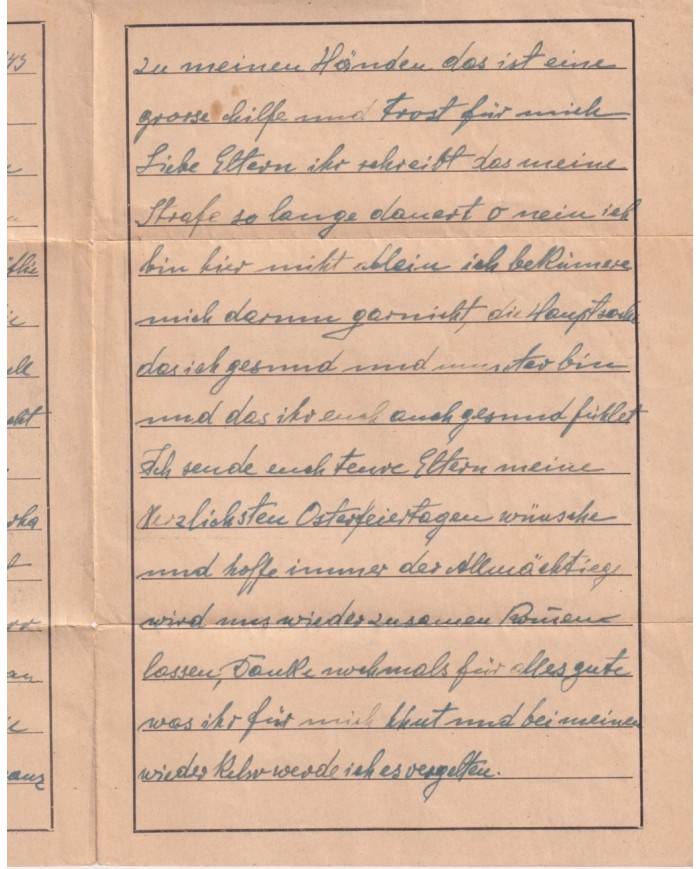 43
zu meinen Händen das ist eine
grosse hilfe und Trost für mich
Liebe Eltern ihr schreibt das meine
Strafe so lange dauert o nein ich
bin hier nicht allein ich bekümere
mich darum garnicht, die Hauptsache
das ich gesund und munter bin
und das ihr euch auch gesund fühlet
Ich sende euch teure Eltern meine
Herzlichsten Osterfeiertagen wünsche
und hoffe immer der Allmächtiege
wird uns wieder zusamen komen
lassen, Danke nochmals für alles gute
was ihr für mich thut und bei meinen
wieder werde ich es vergelten.